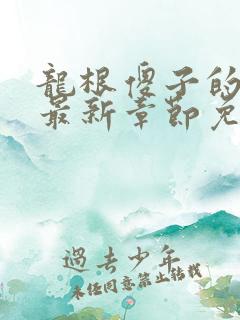 龍根傻子的
最新章節免
過去少年
未經同意禁止轉載